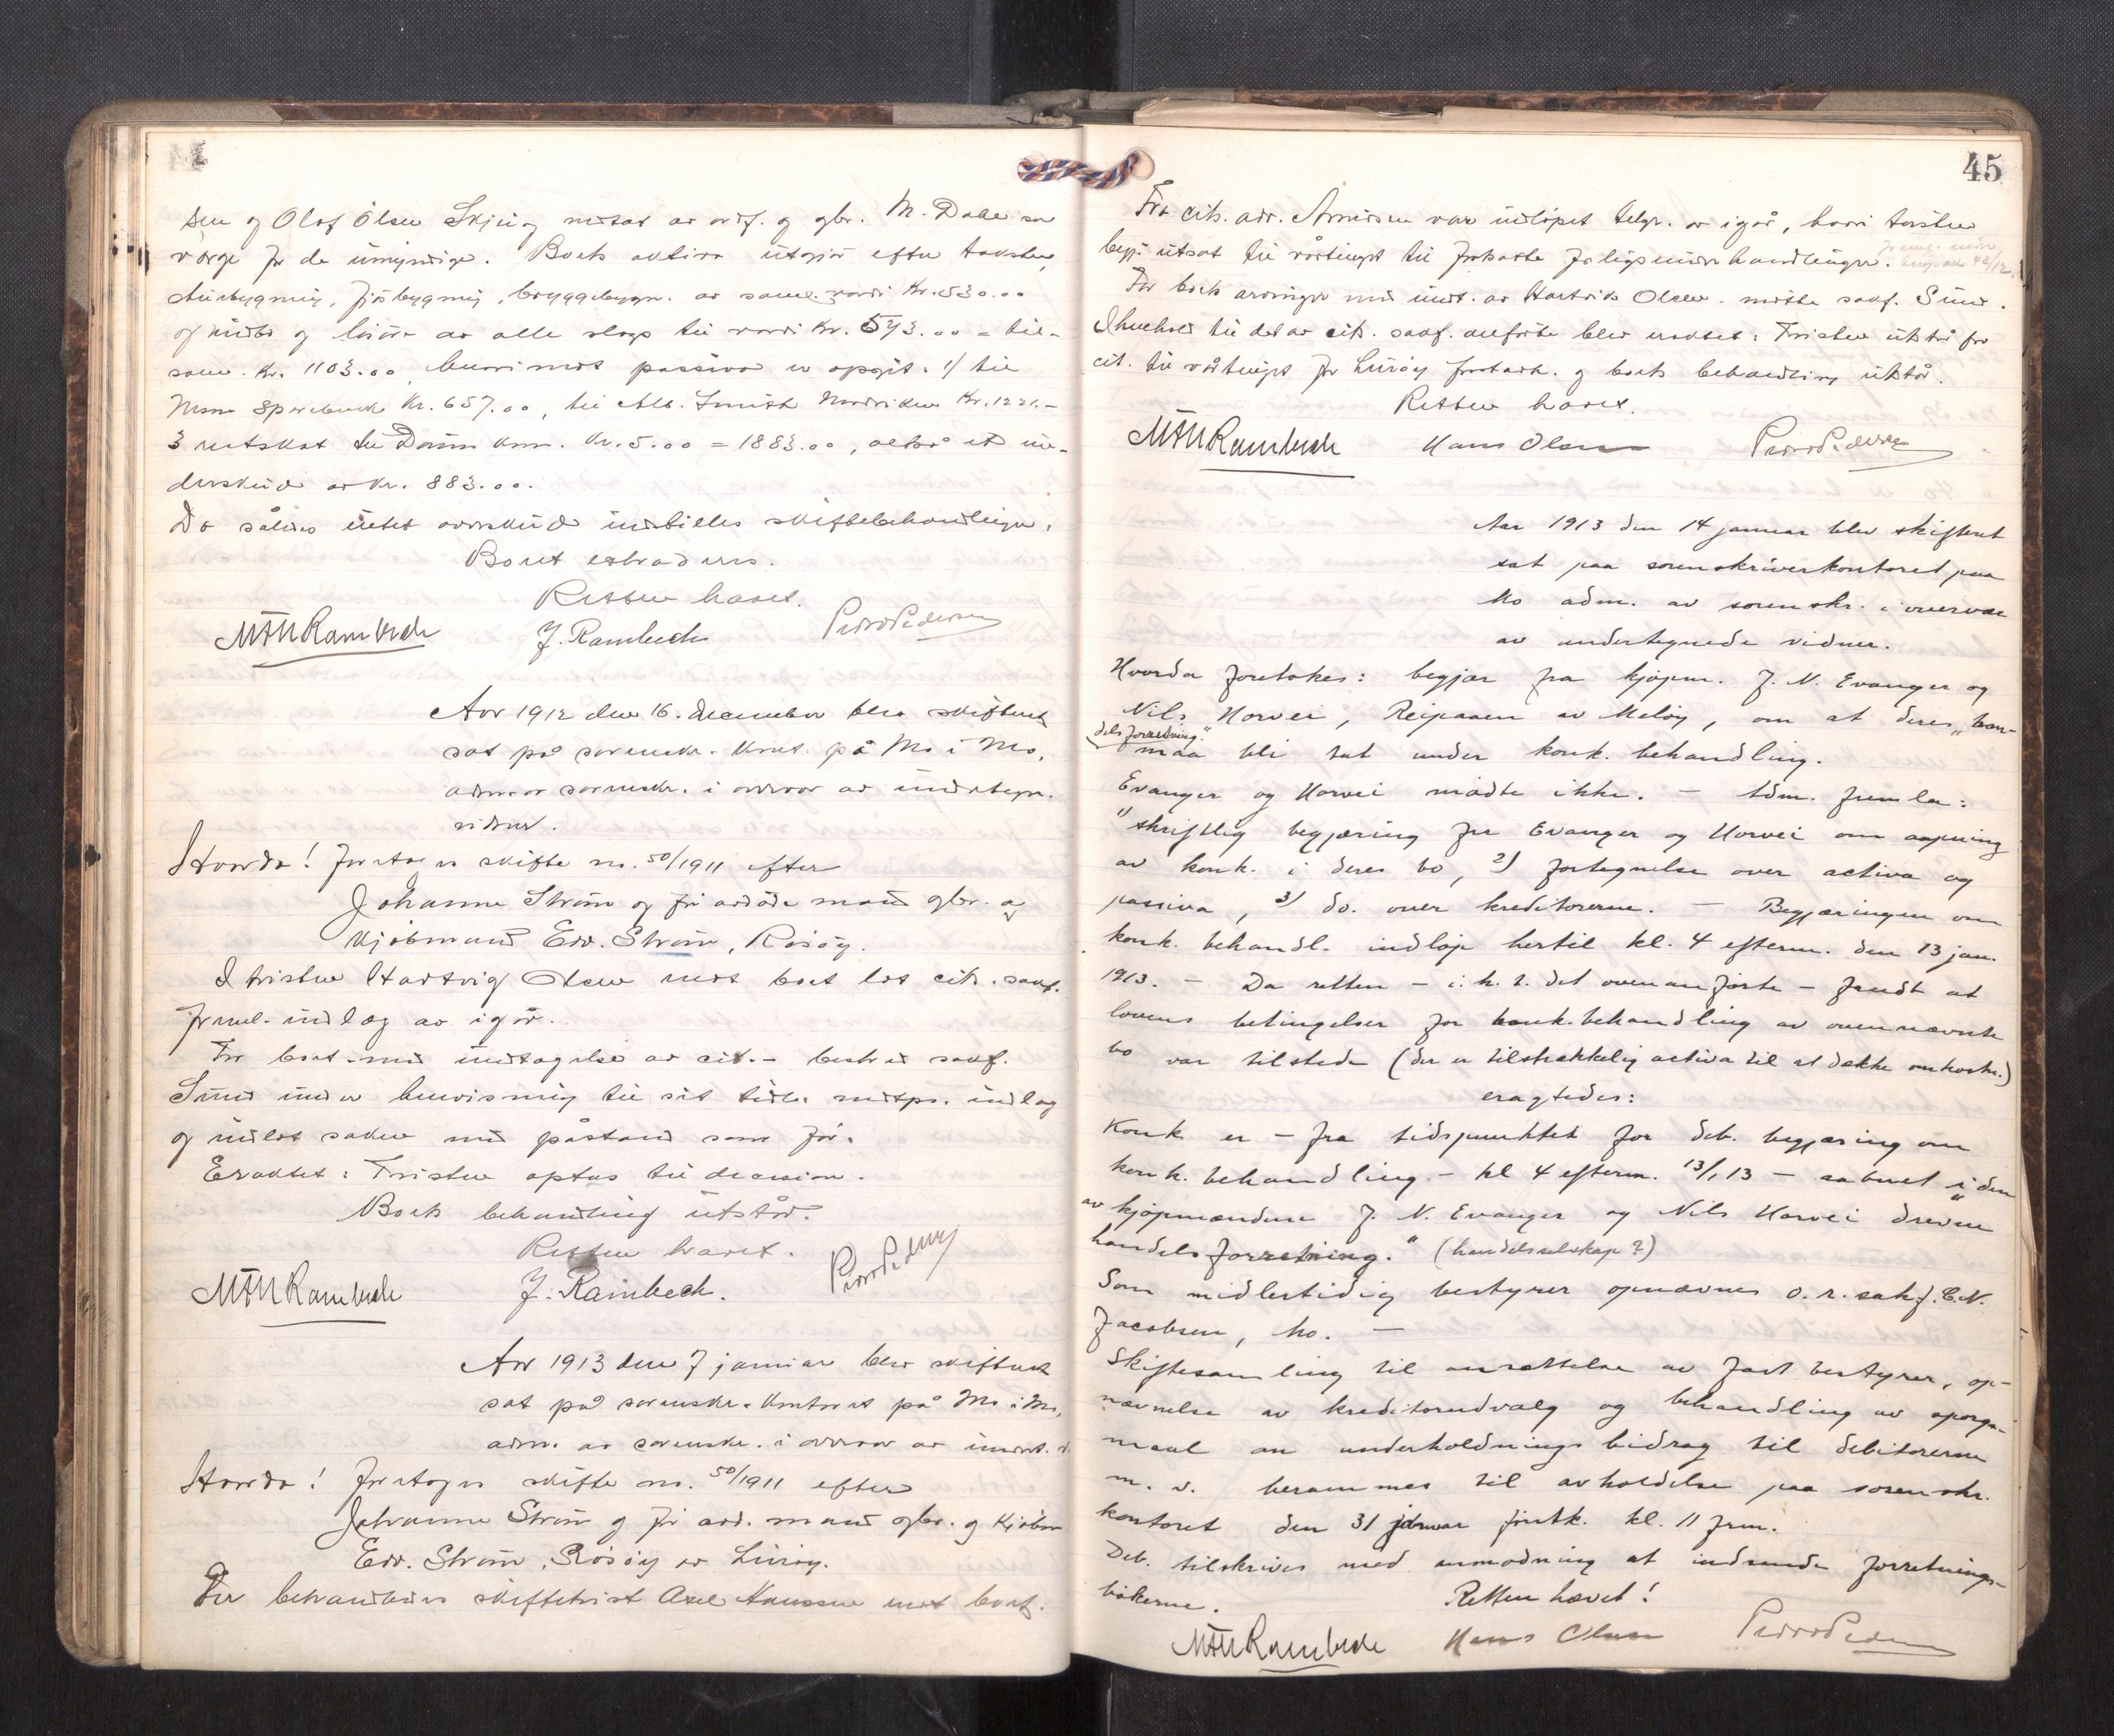 den og Olaf Olsen Skjeig mottat av ordf. og gbr. M. Dahl som
værge for de umyndige. Boets aktiva utgjør efter taksten,
stuebygning, fjøsbygning, bryggebygn. av saml. værdi Kr. 530.00
og indbo og løsøre av alle slags til værdi Kr. 573.00 = til-
sam. Kr. 1103.00, hvorimot passiva er opgit. 1/ til
Mosn Sparebank Kr. 657.00, til Alb. Smith Nordviken Kr. 1221.-
3 restskat til Dønn kom. Kr. 5.00 = 1883.00, altså et un-
derskud av kr. 883.00.
Da således intet overskud indstilles skiftebehandlingen.
Boet extraderes.
Retten hævet.
MAMRambech J. Rambech Peder Pedersen
Aar 1912 den 16. december blev skifteret
sat på sorenskr. kont. på Mo i Mo,
adm. av sorenskr. i overvær av undertegn.
vidner.
Hvorda! foretoges skifte no. 50/1911 efter
Johanne Strøm og før avdøde mand gbr. og
Kjøbmand Edv. Strøm, Rosøy.
I tvisten Hartvig Olsen mot boet lot cit. sakf.
fremл. indlæg av igår.
For boet - med undtagelse av cit. - bestred sakf.
Sund under henvisning til sit tidl. motps. indlæg
og indlot saken med påstand som før.
Eraktet: Tvisten optas til decision.
Boets behandling utstår.
Retten hævet.
MAMRambech J. Rambech. Peder Pedersen
Aar 1913 den 7 januar blev skifteret
sat på sorenskr. kontoret på Mo i Mo,
adm. av sorenskr. i overvær av undert. v.
Hvorda! foretoges skifte no. 50/1911 efter
Johanne Strøm og før avd. mand gbr. og Kjøbm
Edv. Strøm, Rosøy av Lurøy.
Der behandledes skiftetvist Axel Hanssen mot boet.
45
Fra cits. adv. Arnesen var indløpet telgr. av igår, hvori tvisten
begj. utsat til vårtinget til forsatte forligsunderhandlinger.
For boets arvinger med undt. av Hartvik Olsen - møtte sakf. Sund.
I henhold til det av cits. sakf. anførte blev eraktet: Tvisten utstår fra
cit. til vårtinget for Lurøy forstadh. og boets behandling utstår.
Retten hævet.
MAMRambech Hans Olsen Peder Pedersen
Aar 1913 den 14 januar blev skifteret
sat paa sorenskriverkontoret paa
Mo adm. av sorenskr. i overvær
av undertegnede vidner.
Hvorda foretokes: begjær fra kjøpm. J. N. Evanger og
Nils Horvei, Reipaaen av Meløy, om at deres "han-
delsforretning"
maa bli sat under konk. behandling.
Evanger og Horvei mødte ikke. - Adm. fremla:
"skriftlig begjæring fra Evanger og Horvei om aapning
av konk. i deres bo, 2) fortegnelse over activa og
passiva, 3) do. over kreditorerne. - Begjæringen om
konk. behandl. indløp hertil kl. 4 efterm. den 13 jan.
1913. - Da retten - i. h. t. det ovenanførte - fandt at
lovens betingelser for konk. behandling av ovennævnte
bo var tilstede (der er tilstrækkelig activa til at dække omkostn.)
eragtedes:
Konk. er - fra tidspunktet for deb. begjæring om
konk. behandling - kl 4 efterm. 13/1 13 - aabnet i "den
av kjøpmændene J. N. Evanger og Nils Horvei drevne
handelsforretning." (handelsselskap?)
Som midlertidig bestyrer opnævnes o. r. sakf. C. N.
Jacobsen, Mo. -
Skiftesamling til ansættelse av fast bestyrer, op-
nævnelse av kreditorudvalg og behandling av spørgs-
maal om underholdningsbidrag til debitorerne
m. v. berammes til avholdelse paa sorenskr.
kontoret den 31 januar førstk. kl. 11 frm.
Deb. tilskrives med anmodning at indsende forretnings-
bøkerne.
Retten hævet!
MAMRambech Hans Olsen Peder Pedersen